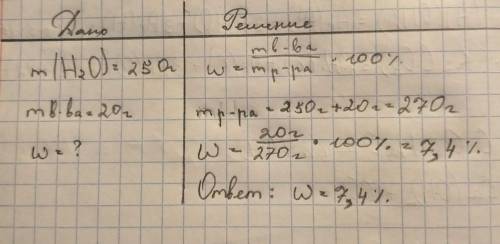 Дано
m(H₂O) = 250г
mв-ва = 20г
ω = ?
Решение
ω = mв-ва / mр-ра · 100%
mр-ра = 250г + 20г = 270г
ω = 20г / 270г · 100% = 7,4%
Ответ: ω = 7,4%.